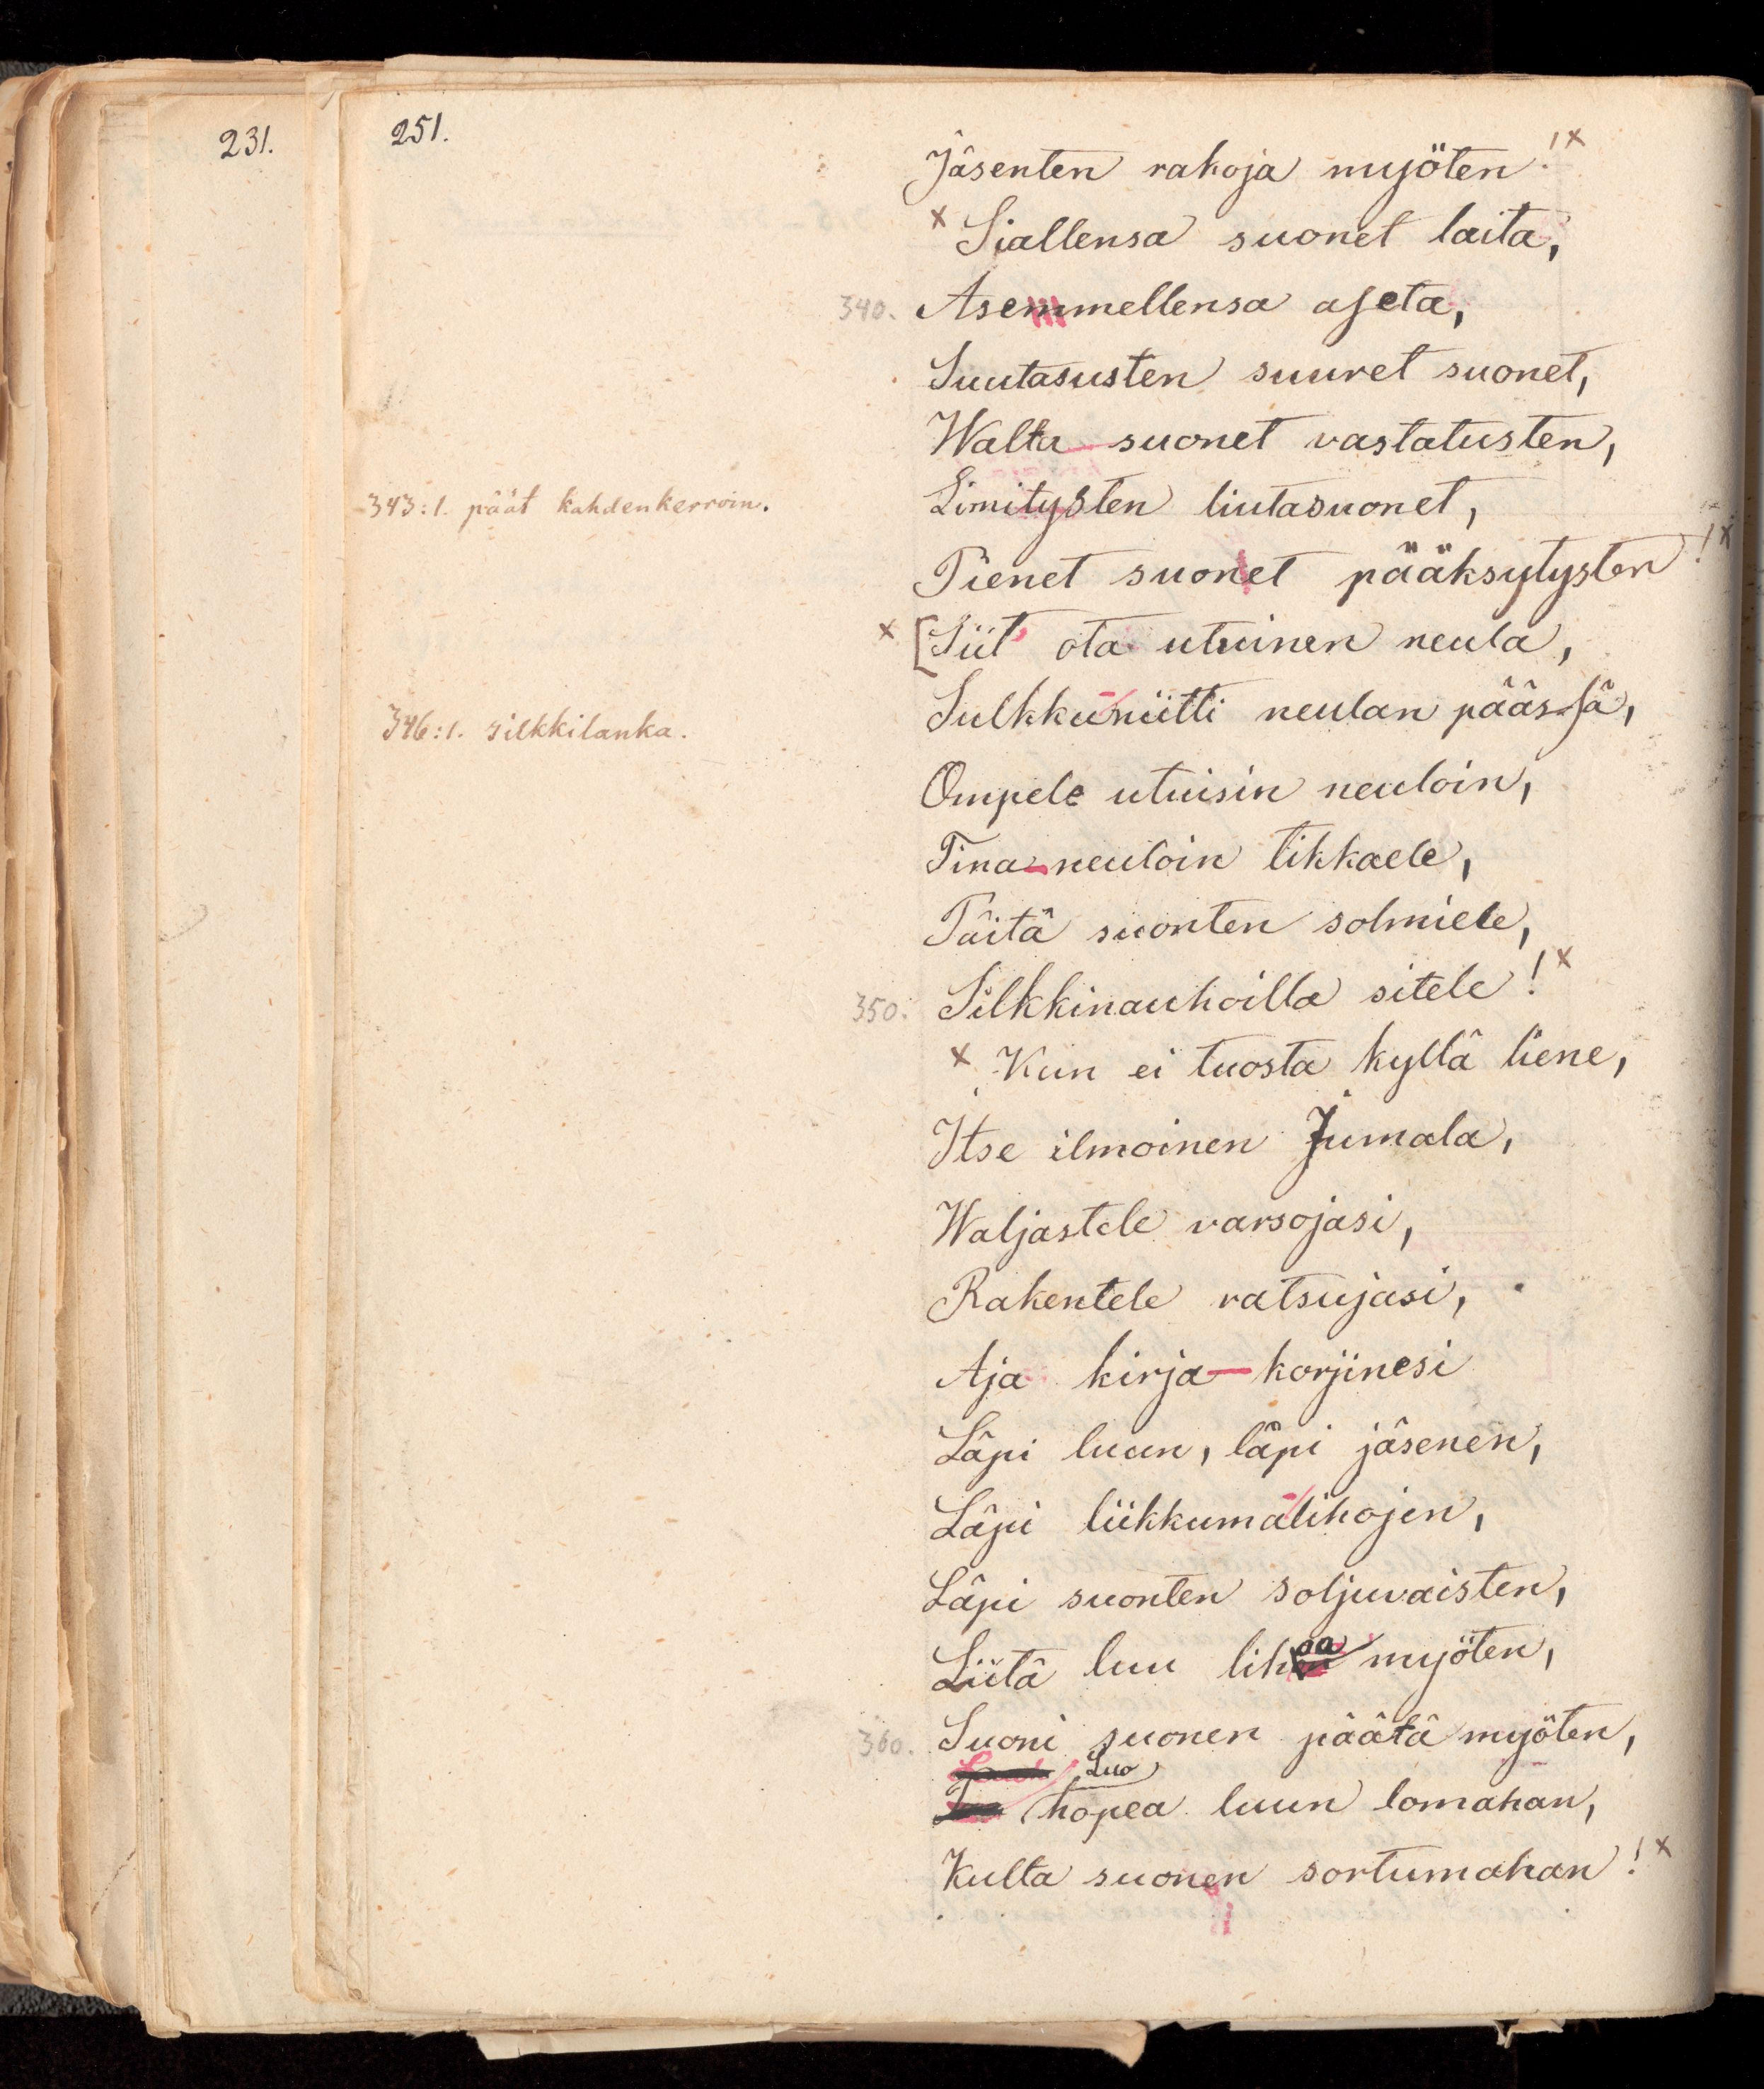 231.
251.
Jäsenten rakoja myöten!x
x Siallensa suonet laita,
340. Asemmellensa aseta,
Suutasusten suuret suonet,
Walta-suonet vastatusten,
343:1. päät kahdenkerroin.
Limitysten liutasuonet,
Pienet suonet pääksytysten!x
x [Siit' ota utuinen neula,
Sulkku-niitti neulan päässä,
346:1. silkkilanka.
Ompele utuisin neuloin,
Tina-neuloin tikkaele,
Päitä suonten solmiele,
350. Silkkinauhoilla sitele!x
x Kun ei tuosta kyllä liene,
Itse ilmoinen Jumala,
Waljastele varsojasi,
Rakentele ratsujasi,
Aja kirja-korjinesi
Läpi luun, läpi jäsenen,
Läpi liikkuma-lihojen,
Läpi suonten soljuvaisten,
Liitä luu lihoa myöten,
360. Suoni suonen päätä myöten,
Luo
hopea luun lomahan,
Kulta suonen sortumahan!x